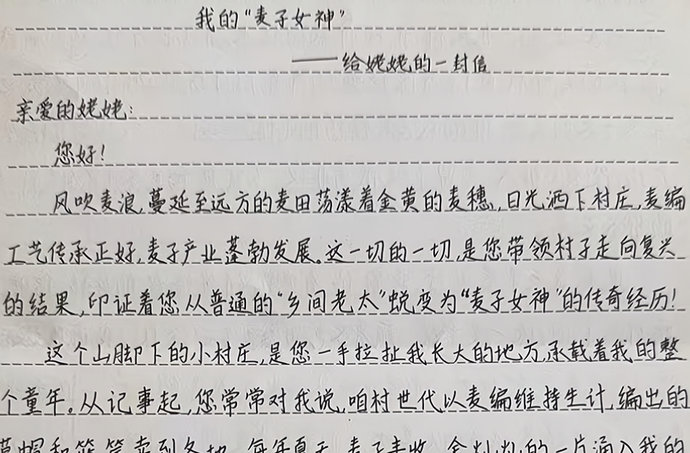 我的“麦子女神”
——给姥姥的一封信
亲爱的姥姥:
您好!
风吹麦浪,蔓延至远方的麦田荡漾着金黄的麦穗,日光洒下村庄,麦编
工艺传承正好,麦子产业蓬勃发展。这一切的一切,是您带领村子走向复兴
的结果,印证着您从普通的“乡间老太”蜕变为“麦子女神”的传奇经历!
这个山脚下的小村庄,是您一手拉扯我长大的地方,承载着我的整
个童年。从记事起,您常常对我说,咱村世代以麦编维持生计,编出的
草帽和篮筐卖到各地。每年夏天,麦子丰收,金灿灿的一片涌入我的